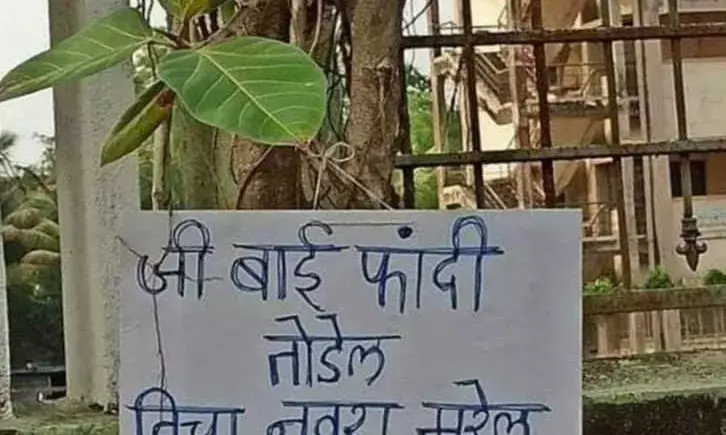 जी बाई फांदी
तोडेल
तिचा नवरा मरेल